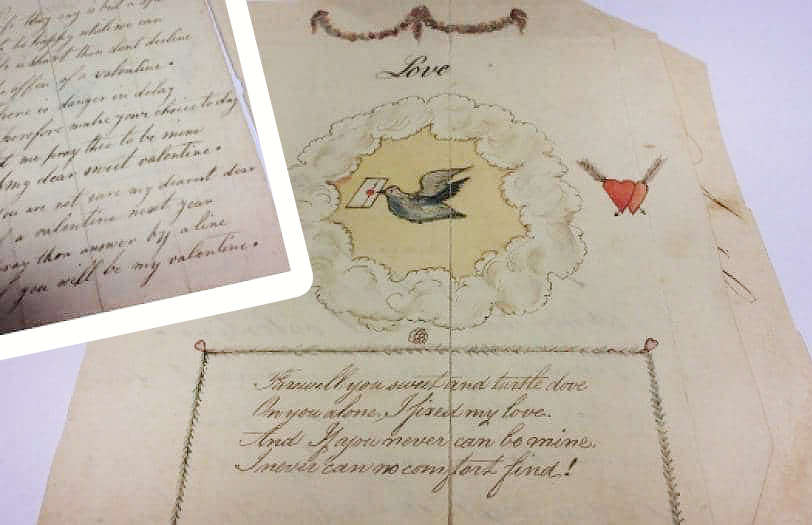 life they say is but a span
be happy while we can
is short then dont decline
offer of a valentine.
here is danger in delay
therefore make your choice to day
let me pray thee to be mine
my dear sweet valentine.
you are not sure my dearest dear
of a valentine next year
pray then answer by a line
if you will be my valentine.
Love
Farewell you sweet and turtle dove
On you alone, I fixed my love.
And If you never can be mine.
I never can no comfort find!